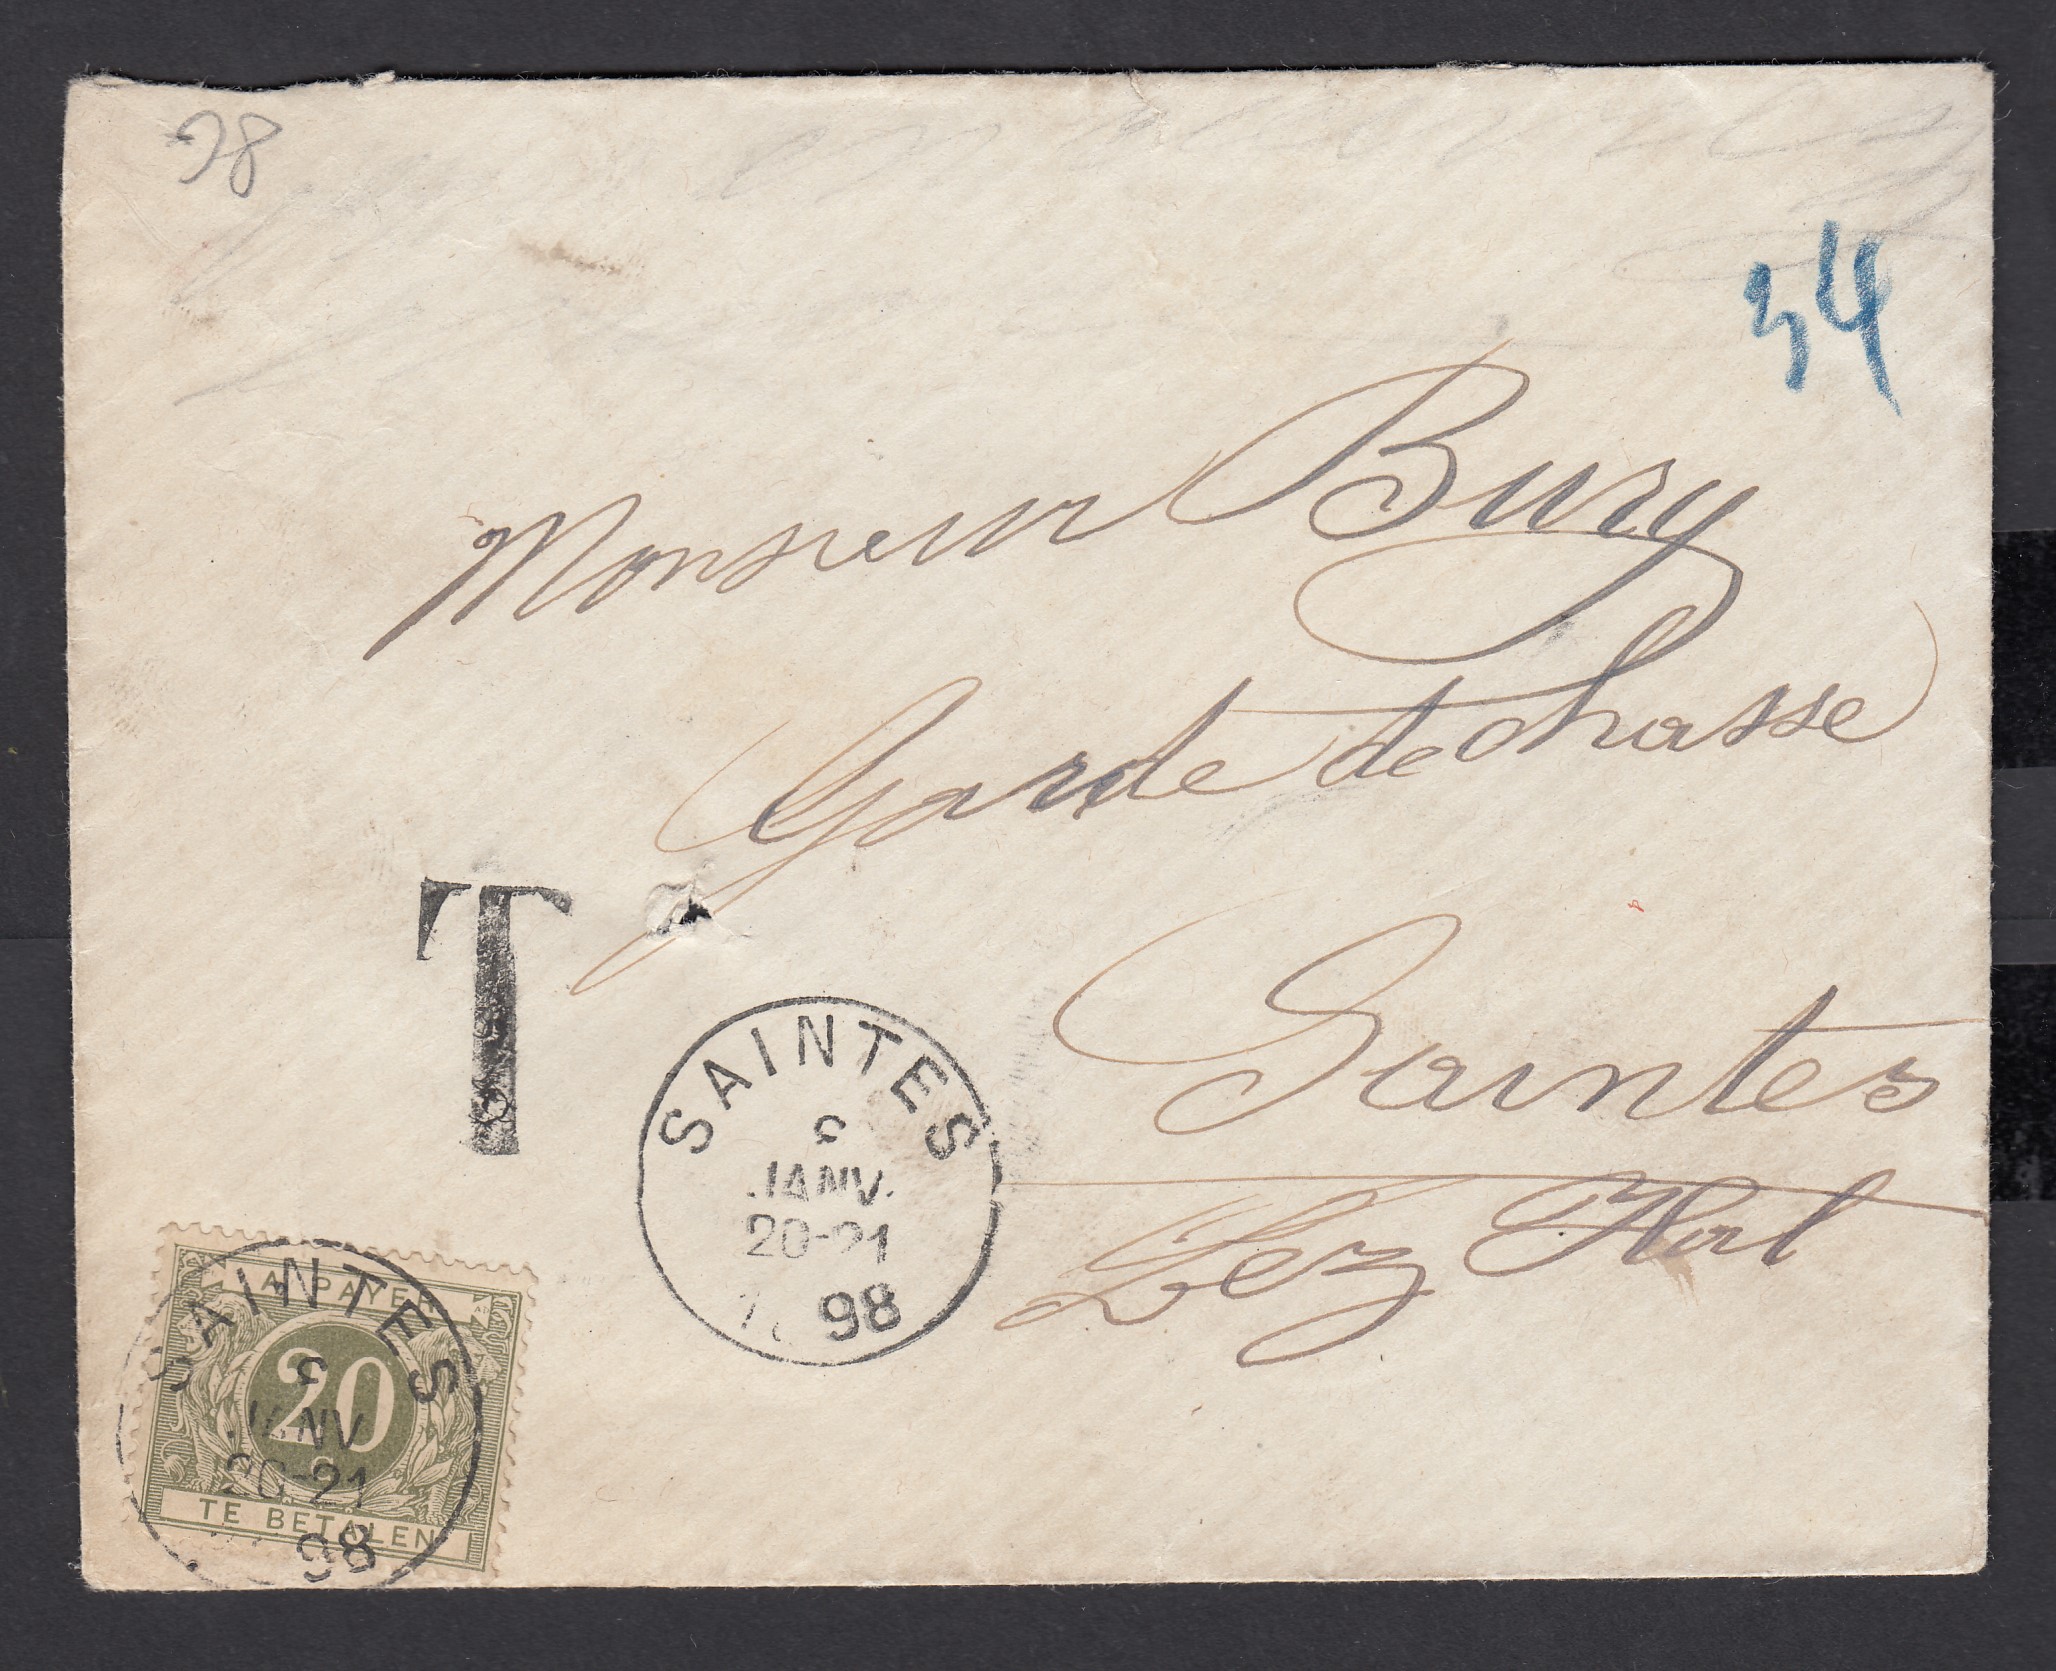 98
34
Monsieur Bury
Garde de chasse
T
Saintes
Lez Hal
SAINTES
JANV.
20-21
98
A PAYER
20
TE BETALEN
SAINTES
JANV
20-21
98